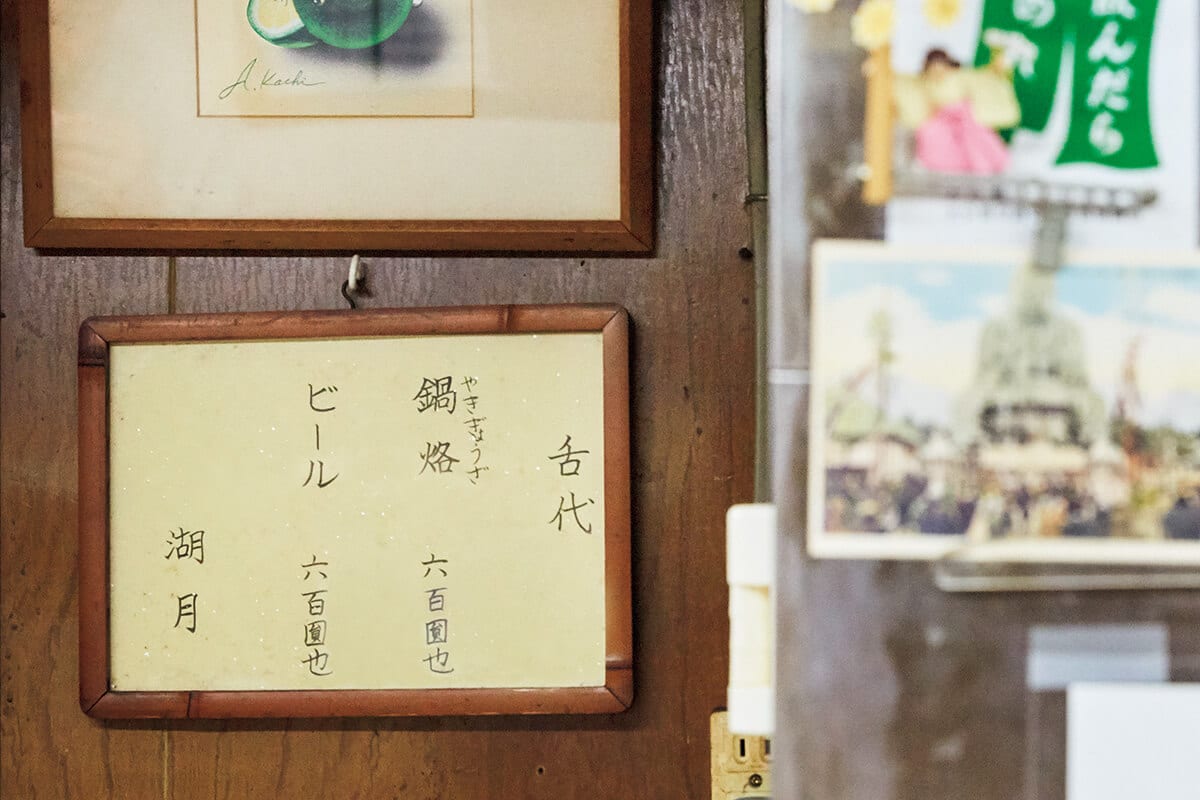 A. Kachi
舌代
鍋烙 六百圓也
やきぎょうざ
ビール 六百圓也
湖月
飲んだら